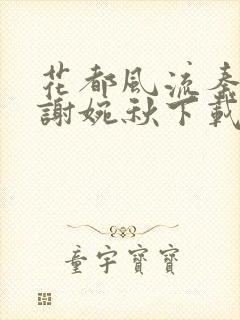 花都風流秦
謝婉秋下載
童宇寶寶